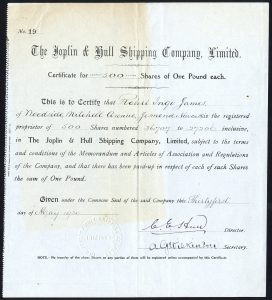 No. 19.
The Joplin & Hull Shipping Company, Limited.
Certificate for 500 Shares of One Pound each.
This is to Certify that Henri Inge James
of Woodside, Mitchell Avenue, Jesmond, Newcastle the registered
proprietor of 500 Shares numbered to inclusive, in
The Joplin & Hull Shipping Company, Limited, subject to the terms
and conditions of the Memorandum and Articles of Association and Regulations
of the Company, and that there has been paid-up in respect of each of such Shares
the sum of One Pound.
Given under the Common Seal of the said Company this Thirtyfirst
day of May 1920
Director.
Secretary.
NOTE. No transfer of the above Shares or any portion of them will be registered unless accompanied by this Certificate.